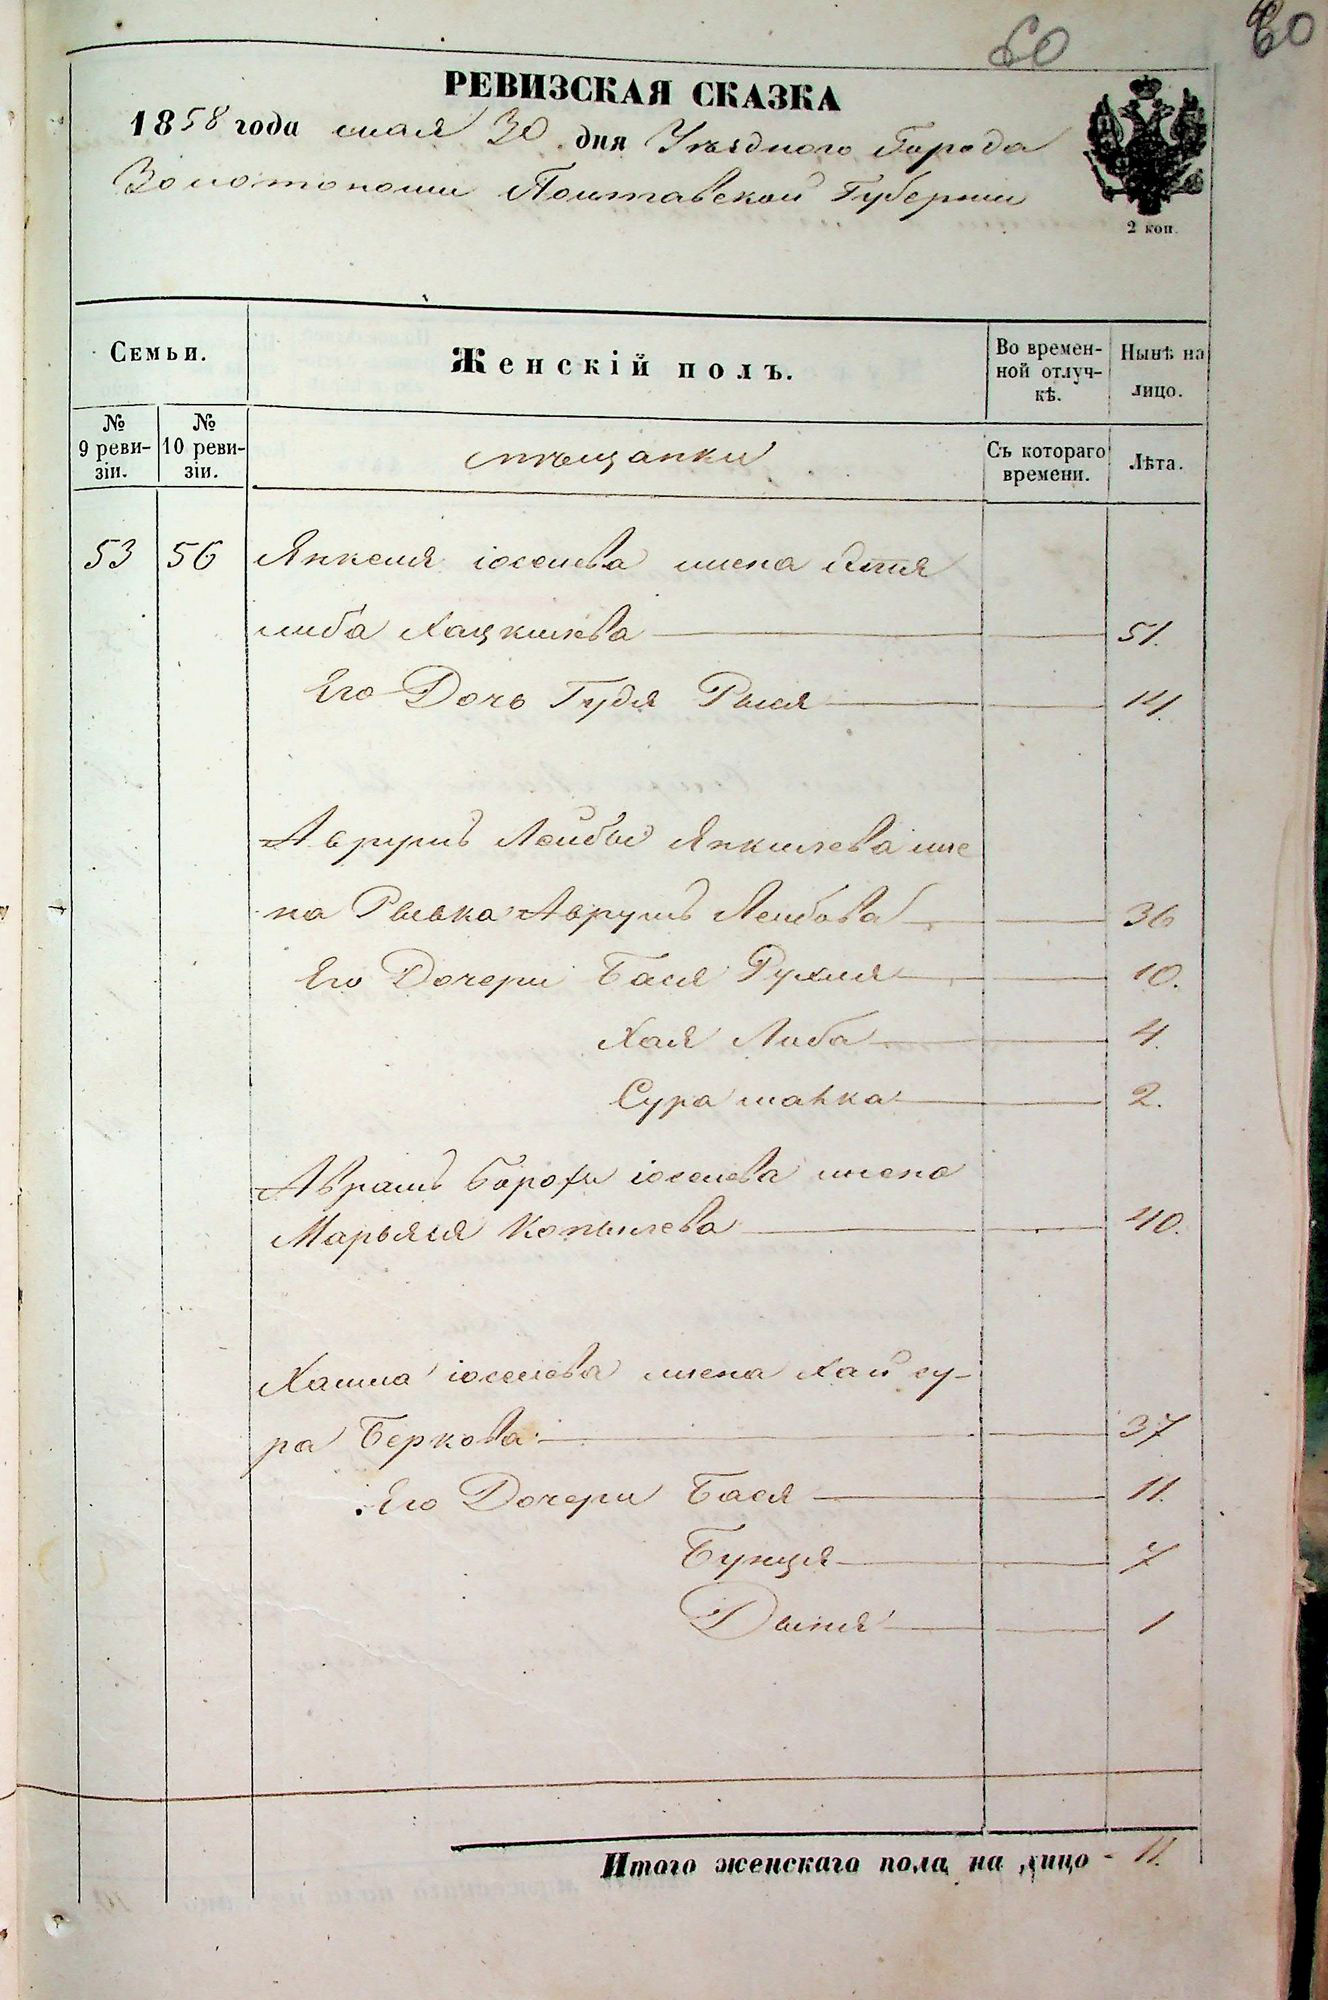 60
60
РЕВИЗСКАЯ СКАЗКА
1858 года мая 30 дня Уѣзднаго Города
Золотоноши Полтавской Губернии
2 коп.
Семьи.
Женскій полъ.
Во времен-
ной отлуч-
кѣ.
Нынѣ на
лицо.
№
9 реви-
зіи.
№
10 реви-
зіи.
мѣщанки
Съ котораго
времени.
Лѣта.
53 56 Янкеля іоселева жена
либа Хацкилева 51.
Его Дочь Гудя Рыся 14.
Аврумъ Лейбы Янкилева же
на Рывка Аврумъ Лейбова 36
Его Дочери Бася Рухля 10.
Хая Либа 4.
Сура 2.
Аврамъ іоселева жена
Марьяся Копылева 40.
іоселева жена Хай су-
ра Беркова 37
Его Дочери Бася 11.
Бунця 7
1
Итого женскаго пола на лицо - 11.